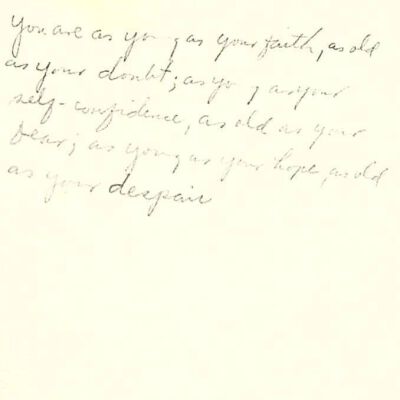 You are as young as your faith, as old
as your doubt; as young as your
self-confidence, as old as your
fear; as young as your hope, as old
as your despair